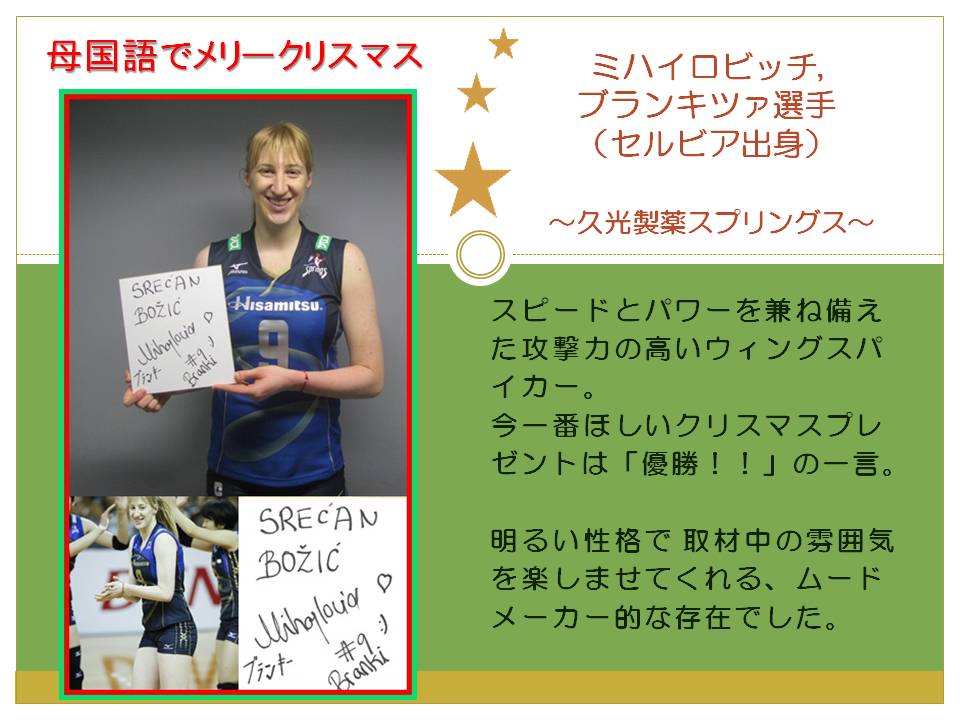 母国語でメリークリスマス
ミハイロビッチ,
ブランキツァ選手
（セルビア出身）
～久光製薬スプリングス～
SREĆAN
BOŽIĆ
Mihajlović
ブランキー
#9 :)
Branki
Hisamitsu
9
MIZUNO
スピードとパワーを兼ね備え
た攻撃力の高いウィングスパ
イカー。
今一番ほしいクリスマスプレ
ゼントは「優勝！！」の一言。
明るい性格で 取材中の雰囲気
を楽しませてくれる、ムード
メーカー的な存在でした。
SREĆAN
BOŽIĆ
Mihajlović
ブランキー
#9 :)
Branki